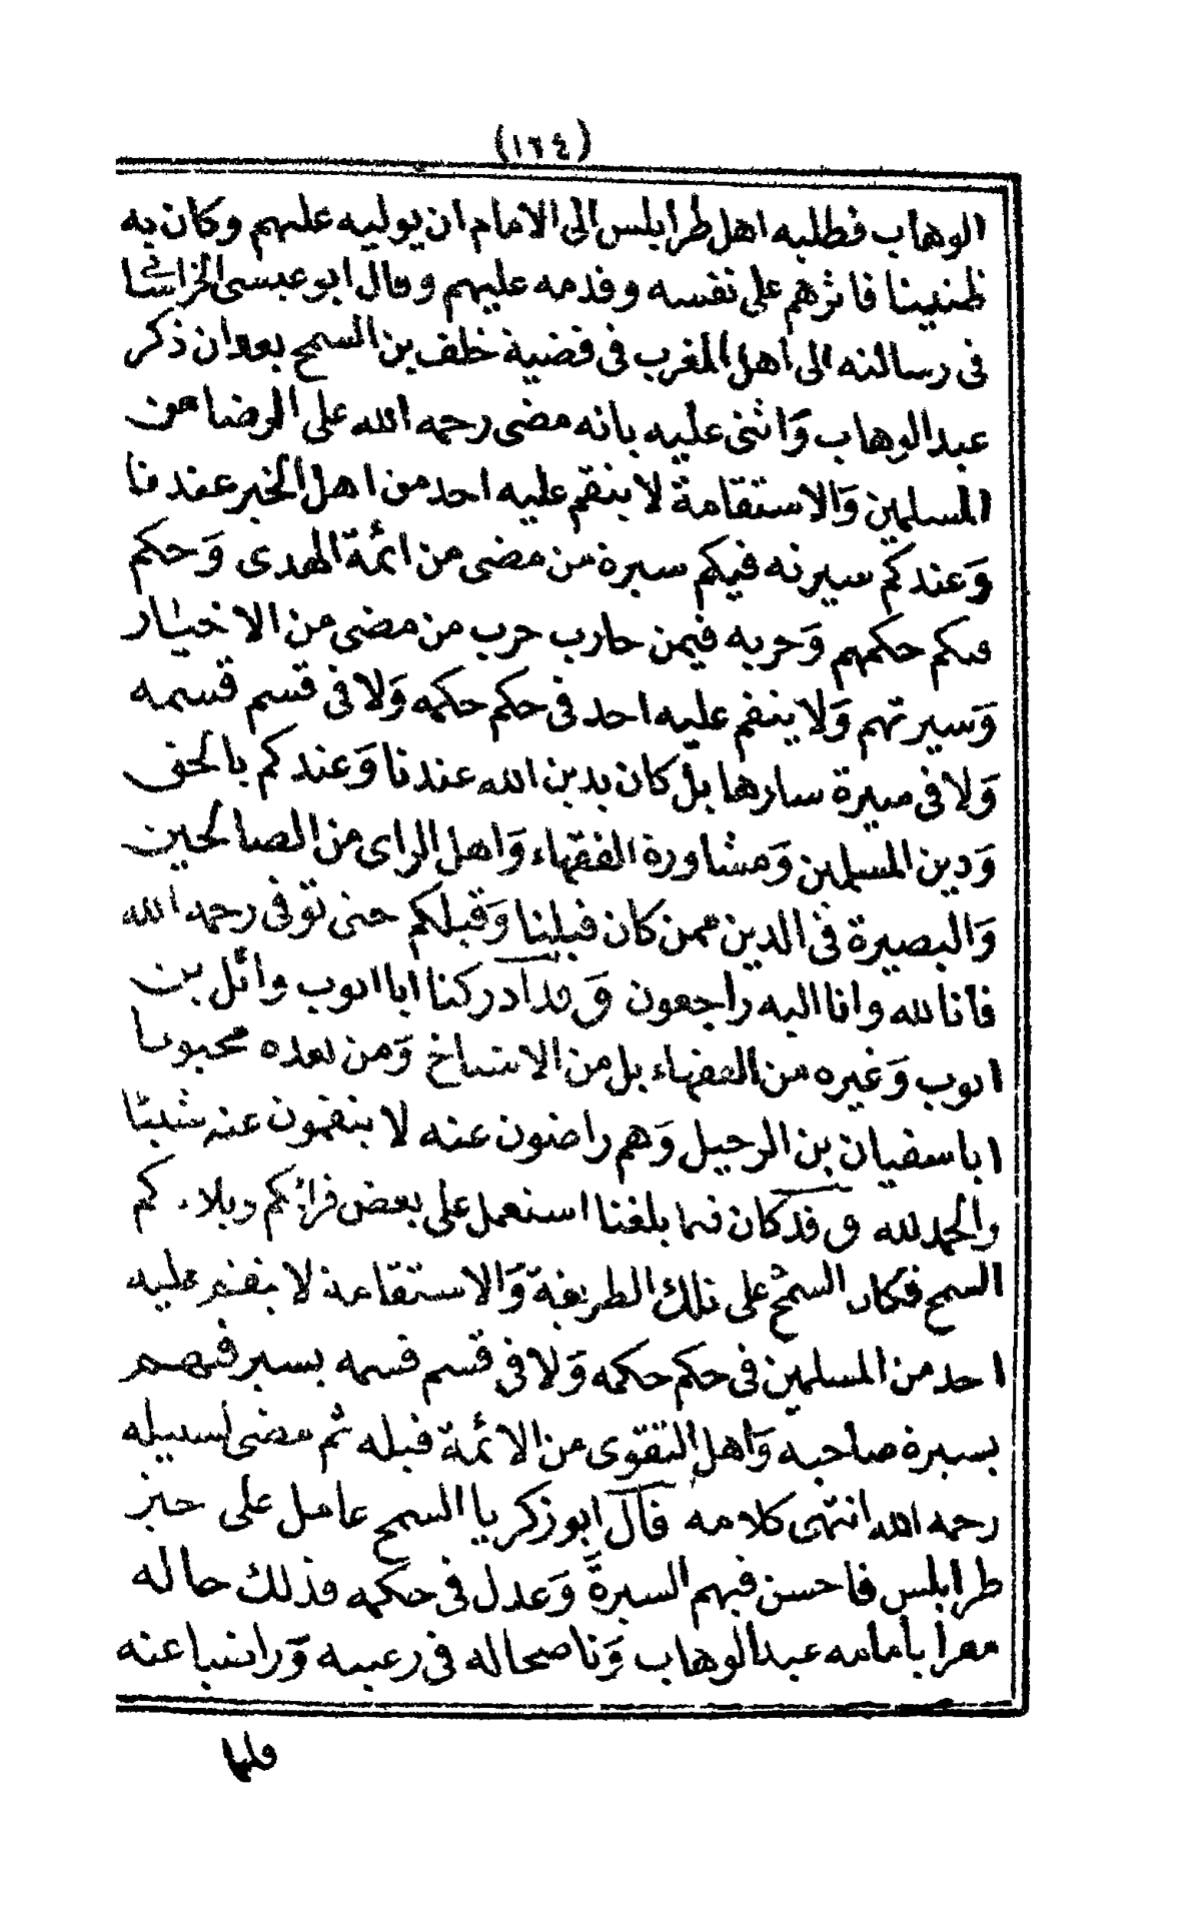 (١٦٤)
الوهاب فطلبه اهل طرابلس الى الامام ان يوليه عليهم وكان به
ظنينا فاثرهم على نفسه وقدمه عليهم وقال ابو عيسى الخراسانى
فى رسالته الى اهل المغرب فى قضية خلف بن السمح بعد ان ذكر
عبد الوهاب وَاثنى عليه بانه مضى رحمه الله على الرضا من
المسلمين وَالاستقامة لا ينقم عليه احد من اهل الخير عندنا
وَعندكم سيرته فيكم سيرة من مضى من ائمة الهدى وَحكم
فيكم حكمهم وَحربه فيمن حارب حرب من مضى من الاخيار
وَسيرتهم وَلا ينقم عليه احد فى حكم حكمه وَلا فى قسم قسمه
وَلا فى سيرة سارها بل كان يدين الله عندنا وَعندكم بالحق
وَدين المسلمين وَمشاورة الفقهاء وَاهل الراى من الصالحين
وَالبصيرة فى الدين ممن كان قبلنا وَقبلكم حتى توفى رحمه الله
فانا لله وانا اليه راجعون وَقد آدركنا ابا ايوب وائل بن
ايوب وَغيره من الفقهاء بل من الاشياخ وَمن بعده محبوبا
ابا سفيان بن الرحيل وَهم راضون عنه لا ينقمون عنه شيئا
والحمد لله وَقد كان فيما بلغنا استعمل على بعض قرائكم وبلادكم
السمح فكان السمح على تلك الطريقة وَالاستقامة لا ينقم عليه
احد من المسلمين فى حكم حكمه وَلا فى قسم قسمه يسير فيهم
بسيرة صاحبه وَاهل التقوى من الائمة قبله ثم مضى لسبيله
رحمه الله انتهى كلامه قال ابو زكريا السمح عامل على حيز
طرابلس فاحسن فيهم السيرة وَعدل فى حكمه فذلك حاله
مقرا بامامه عبد الوهاب وَناصحا له فى رعيته وَراضيا عنه
فلما